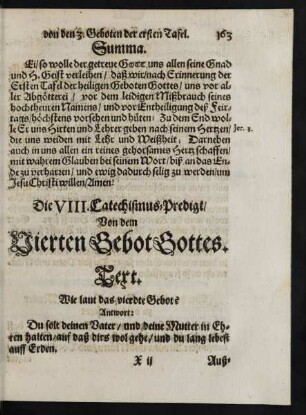 von den 3. Geboten der ersten Tafel. 363
Summa.
Ei/ so wolle der getreue GOtt uns allen seine Gnad
und H. Geist verleihen / daß wir/ nach Erinnerung der
Ersten Tafel der heiligen Geboten Gottes / uns vor al-
ler Abgötterei / vor dem leidigen Mißbrauch seines
hochtheuren Namens / und vor Entheiligung deß Feir-
tags/ höchstens vorsehen und hüten: Zu dem End wol-
le Er uns Hirten und Lehrer geben nach seinem Hertzen/ Jer. 3.
die uns weiden mit Lehr und Weißheit: Darneben
auch in uns allen ein reines gehorsames Hertz schaffen/
mit wahrem Glauben bei seinem Wort / biß an das En-
de zu verharren / und ewig dadurch selig zu werden/ um
Jesu Christi willen/ Amen!
Die VIII. Catechismus-Predigt/
Von dem
Vierten Gebot Gottes.
Text.
Wie laut das vierdte Gebot?
Antwort:
Du solt deinen Vater / und deine Mutter in Eh-
ren halten/ auf daß dirs wol gehe / und du lang lebest
auff Erden.
X ij Auß-